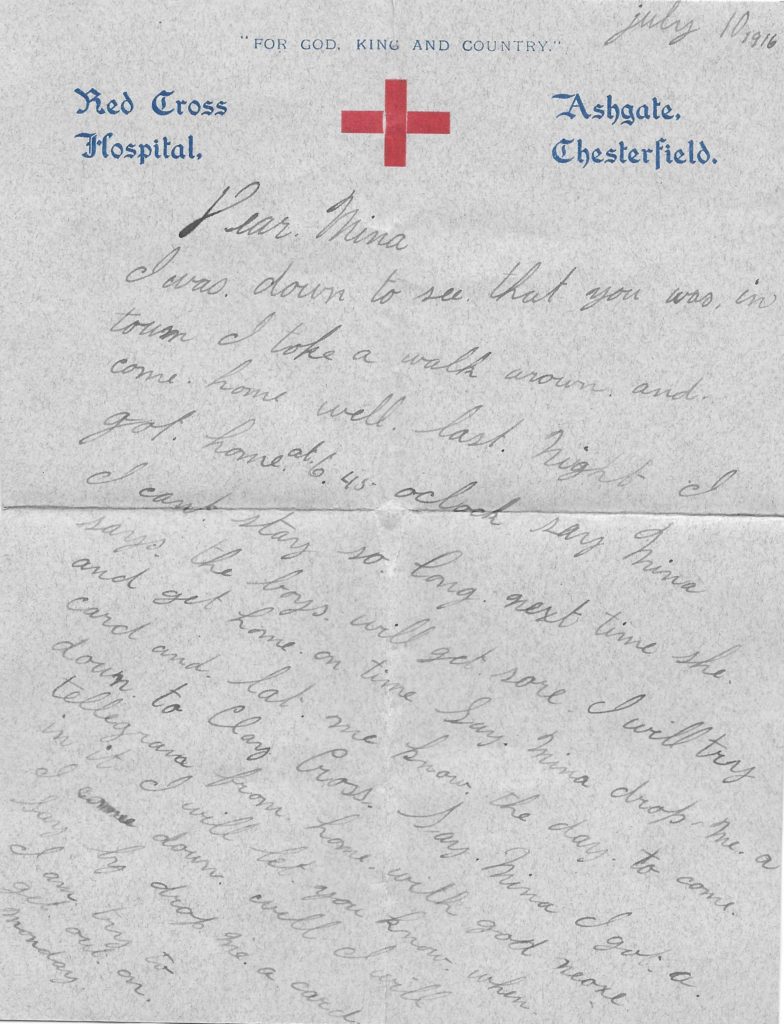 july 10 1916
"FOR GOD, KING AND COUNTRY."
Red Cross Hospital,
Ashgate, Chesterfield.
Dear. Mina
I was. down to see. that you was. in
toum I toke a walk arown. and.
come. home well. last. Night I
got. home. at. 6. 45. oclock say Mina
I cant stay so. long. next time she.
says. the boys. will get sore. I will try
and get home. on time Say. Mina drop. me. a
card and. lat. me know. the day. to come.
down. to Clay Cross. Say. Mina I got. a.
tellegram from. home. with good neoxe.
in it I will let you know. when.
I come down. well I will
Say. by drop. me. a card
I am try to
get out on.
Monday.